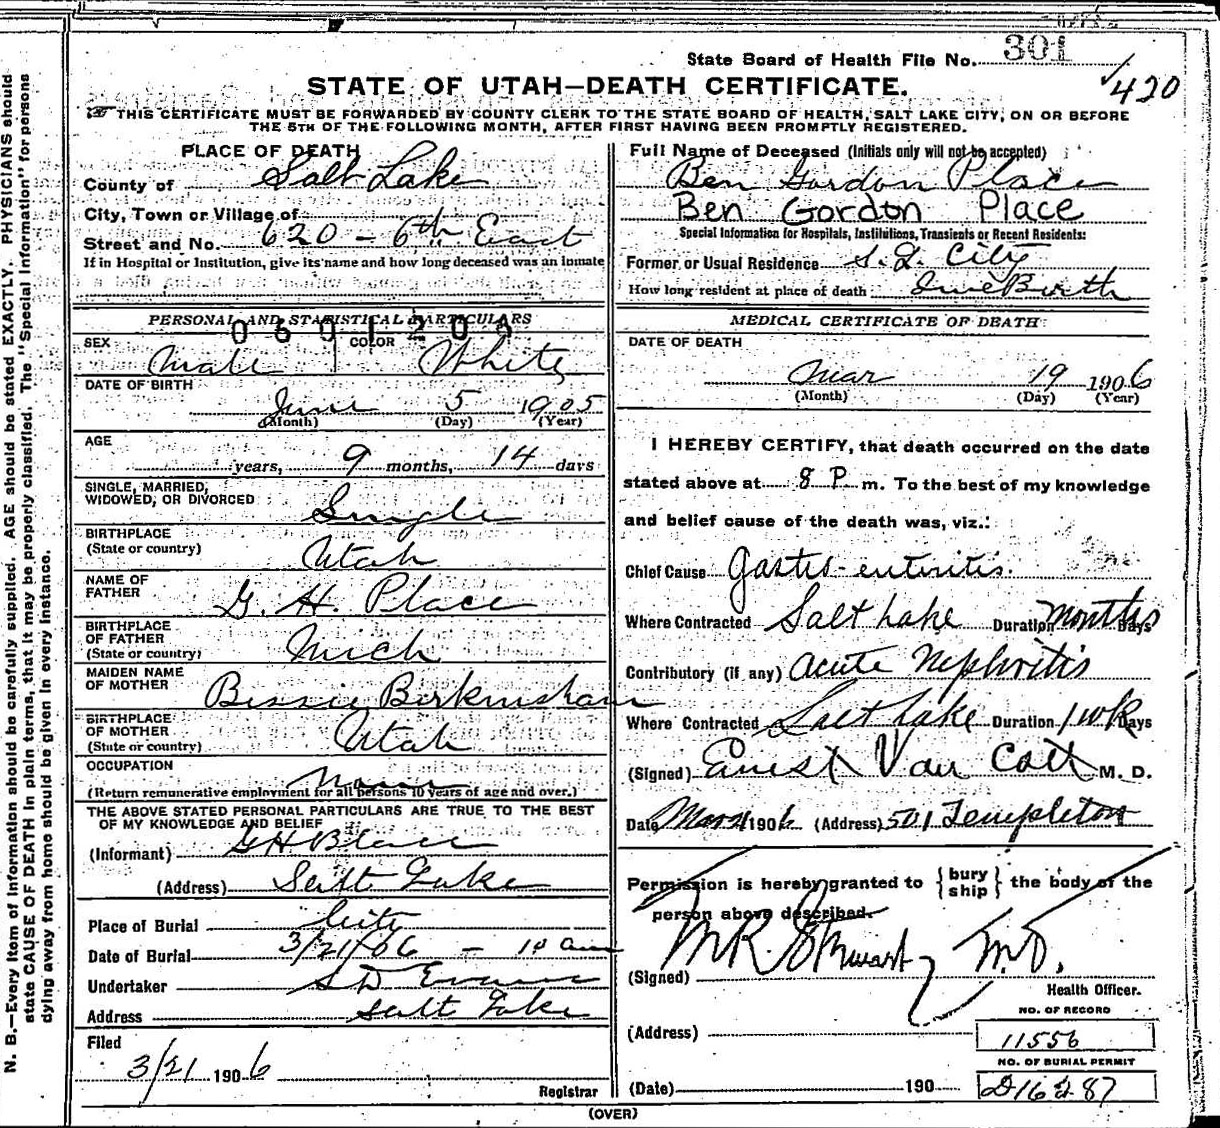 State Board of Health File No. 301
420
STATE OF UTAH—DEATH CERTIFICATE.
THIS CERTIFICATE MUST BE FORWARDED BY COUNTY CLERK TO THE STATE BOARD OF HEALTH, SALT LAKE CITY, ON OR BEFORE
THE 5TH OF THE FOLLOWING MONTH, AFTER FIRST HAVING BEEN PROMPTLY REGISTERED.
PLACE OF DEATH
County of Salt Lake
City, Town or Village of
Street and No. 620 - 6th East
If in Hospital or Institution, give its name and how long deceased was an inmate
PERSONAL AND STATISTICAL PARTICULARS
SEX Male COLOR White
DATE OF BIRTH
June 5 1905
(Month) (Day) (Year)
AGE
years, 9 months, 14 days
SINGLE, MARRIED,
WIDOWED, OR DIVORCED Single
BIRTHPLACE
(State or country) Utah
NAME OF
FATHER G. H. Place
BIRTHPLACE
OF FATHER
(State or country) Mich
MAIDEN NAME
OF MOTHER Bessie Birkinshaw
BIRTHPLACE
OF MOTHER
(State or country) Utah
OCCUPATION None
(Return remunerative employment for all persons 10 years of age and over.)
THE ABOVE STATED PERSONAL PARTICULARS ARE TRUE TO THE BEST
OF MY KNOWLEDGE AND BELIEF
(Informant) G H Place
(Address) Salt Lake
Place of Burial City
Date of Burial 3/21/06 - 10 am
Undertaker S D Evans
Address Salt Lake
Filed
3/21 1906
Registrar
Full Name of Deceased (Initials only will not be accepted)
Ben Gordon Place
Ben Gordon Place
Special Information for Hospitals, Institutions, Transients or Recent Residents:
Former or Usual Residence S. L. City
How long resident at place of death Since Birth
MEDICAL CERTIFICATE OF DEATH
DATE OF DEATH
Mar 19 1906
(Month) (Day) (Year)
I HEREBY CERTIFY, that death occurred on the date
stated above at 8 P. m. To the best of my knowledge
and belief cause of the death was, viz.:
Chief Cause Gastro-enteritis.
Where Contracted Salt Lake Duration months Days
Contributory (if any) Acute Nephritis
Where Contracted Salt Lake Duration 1 wk Days
(Signed) Ernest Van Cott M. D.
Date Mar 21 1906 (Address) 501 Templeton
Permission is hereby granted to {bury ship} the body of the
person above described.
(Signed) M R Stewart, M.D.
Health Officer.
(Address)
NO. OF RECORD
11556
NO. OF BURIAL PERMIT
(Date) 190 D16287
(OVER)
N. B.—Every item of information should be carefully supplied. AGE should be stated EXACTLY. PHYSICIANS should
state CAUSE OF DEATH in plain terms, that it may be properly classified. The "Special Information" for persons
dying away from home should be given in every instance.